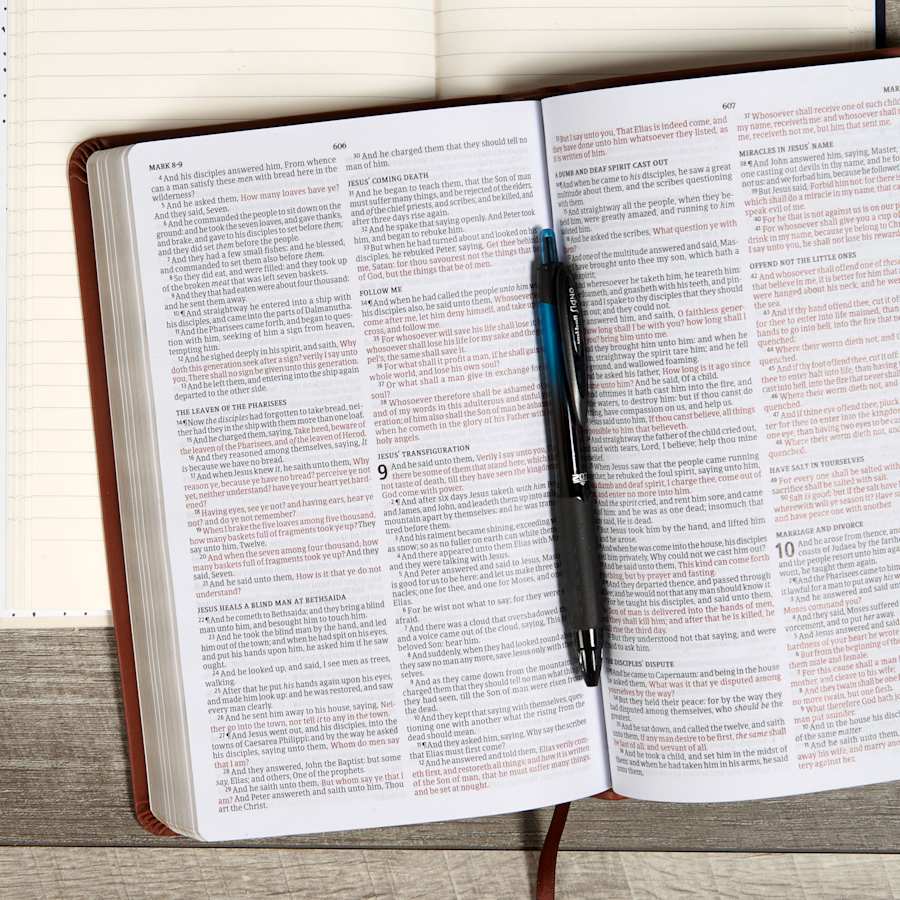 606
MARK 8-9
4 And his disciples answered him, From whence
can a man satisfy these men with bread here in the
wilderness?
5 And he asked them, How many loaves have ye?
And they said, Seven.
6 And he commanded the people to sit down on the
ground: and he took the seven loaves, and gave thanks,
and brake, and gave to his disciples to set before them;
and they did set them before the people.
7 And they had a few small fishes: and he blessed,
and commanded to set them also before them.
8 So they did eat, and were filled: and they took up
of the broken meat that was left seven baskets.
9 And they that had eaten were about four thousand:
and he sent them away.
10 ¶And straightway he entered into a ship with
his disciples, and came into the parts of Dalmanutha.
11 And the Pharisees came forth, and began to ques-
tion with him, seeking of him a sign from heaven,
tempting him.
12 And he sighed deeply in his spirit, and saith, Why
doth this generation seek after a sign? verily I say unto
you, There shall no sign be given unto this generation.
13 And he left them, and entering into the ship again
departed to the other side.
THE LEAVEN OF THE PHARISEES
14 ¶Now the disciples had forgotten to take bread, nei-
ther had they in the ship with them more than one loaf.
15 And he charged them, saying, Take heed, beware of
the leaven of the Pharisees, and of the leaven of Herod.
16 And they reasoned among themselves, saying, It
is because we have no bread.
17 And when Jesus knew it, he saith unto them, Why
reason ye, because ye have no bread? perceive ye not
yet, neither understand? have ye your heart yet hard-
ened?
18 Having eyes, see ye not? and having ears, hear ye
not? and do ye not remember?
19 When I brake the five loaves among five thousand,
how many baskets full of fragments took ye up? They
say unto him, Twelve.
20 And when the seven among four thousand, how
many baskets full of fragments took ye up? And they
said, Seven.
21 And he said unto them, How is it that ye do not
understand?
JESUS HEALS A BLIND MAN AT BETHSAIDA
22 ¶And he cometh to Bethsaida; and they bring a blind
man unto him, and besought him to touch him.
23 And he took the blind man by the hand, and led
him out of the town; and when he had spit on his eyes,
and put his hands upon him, he asked him if he saw
ought.
24 And he looked up, and said, I see men as trees,
walking.
25 After that he put his hands again upon his eyes,
and made him look up: and he was restored, and saw
every man clearly.
26 And he sent him away to his house, saying, Nei-
ther go into the town, nor tell it to any in the town.
27 ¶And Jesus went out, and his disciples, into the
towns of Caesarea Philippi: and by the way he asked
his disciples, saying unto them, Whom do men say
that I am?
28 And they answered, John the Baptist: but some
say, Elias; and others, One of the prophets.
29 And he saith unto them, But whom say ye that I
am? And Peter answereth and saith unto him, Thou
art the Christ.
30 And he charged them that they should tell no
man of him.
JESUS' COMING DEATH
31 ¶And he began to teach them, that the Son of man
must suffer many things, and be rejected of the elders,
and of the chief priests, and scribes, and be killed, and
after three days rise again.
32 And he spake that saying openly. And Peter took
him, and began to rebuke him.
33 But when he had turned about and looked on his
disciples, he rebuked Peter, saying, Get thee behind
me, Satan: for thou savourest not the things that be
of God, but the things that be of men.
FOLLOW ME
34 ¶And when he had called the people unto him with
his disciples also, he said unto them, Whosoever
come after me, let him deny himself, and take up
cross, and follow me.
35 For whosoever will save his life shall lose it;
whosoever shall lose his life for my sake and the
pel's, the same shall save it.
36 For what shall it profit a man, if he shall gain
whole world, and lose his own soul?
37 Or what shall a man give in exchange for
soul?
38 Whosoever therefore shall be ashamed of
and of my words in this adulterous and sinful
eration; of him also shall the Son of man be ashamed
when he cometh in the glory of his Father with
holy angels.
JESUS' TRANSFIGURATION
9 And he said unto them, Verily I say unto you,
there be some of them that stand here, which
not taste of death, till they have seen the kingdom
God come with power.
2 ¶And after six days Jesus taketh with him
and James, and John, and leadeth them up into an
mountain apart by themselves: and he was trans
ured before them.
3 And his raiment became shining, exceeding
as snow; so as no fuller on earth can white them
4 And there appeared unto them Elias with
and they were talking with Jesus.
5 And Peter answered and said to Jesus, Master,
is good for us to be here: and let us make three
nacles; one for thee, and one for Moses, and one
Elias.
6 For he wist not what to say; for they were
afraid.
7 And there was a cloud that overshadowed
and a voice came out of the cloud, saying, This
beloved Son: hear him.
8 And suddenly, when they had looked round
they saw no man any more, save Jesus only with
selves.
9 And as they came down from the mountain,
charged them that they should tell no man what
they had seen, till the Son of man were risen
the dead.
10 And they kept that saying with themselves,
tioning one with another what the rising from the
dead should mean.
11 ¶And they asked him, saying, Why say the scribes
that Elias must first come?
12 And he answered and told them, Elias verily com-
eth first, and restoreth all things; and how it is written
of the Son of man, that he must suffer many things,
and be set at nought.
607
13 But I say unto you, That Elias is indeed come, and
they have done unto him whatsoever they listed, as
it is written of him.
DUMB AND DEAF SPIRIT CAST OUT
14 ¶And when he came to his disciples, he saw a great
multitude about them, and the scribes questioning
with them.
15 And straightway all the people, when they be-
held him, were greatly amazed, and running to him
saluted him.
16 And he asked the scribes, What question ye with
one of the multitude answered and said, Mas-
brought unto thee my son, which hath a
wheresoever he taketh him, he teareth him:
foameth, and gnasheth with his teeth, and pin-
and I spake to thy disciples that they should
out; and they could not.
answered him, and saith, O faithless gener
how long shall I be with you? how long shall
bring him unto me.
they brought him unto him: and when he
straightway the spirit tare him; and he fell
ground, and wallowed foaming.
asked his father, How long is it ago since
unto him? And he said, Of a child.
ofttimes it hath cast him into the fire, and
waters, to destroy him: but if thou canst do
have compassion on us, and help us.
said unto him, If thou canst believe, all things
possible to him that believeth.
straightway the father of the child cried out,
with tears, Lord, I believe; help thou mine
When Jesus saw that the people came running
he rebuked the foul spirit, saying unto him,
dumb and deaf spirit, I charge thee, come out of
and enter no more into him.
the spirit cried, and rent him sore, and came
him: and he was as one dead; insomuch that
said, He is dead.
But Jesus took him by the hand, and lifted him
he arose.
And when he was come into the house, his disciples
him privately, Why could not we cast him out?
he said unto them, This kind can come forth
thing, but by prayer and fasting.
they departed thence, and passed through
and he would not that any man should know it.
he taught his disciples, and said unto them,
Son of man is delivered into the hands of men,
shall kill him; and after that he is killed, he
the third day.
But they understood not that saying, and were
to ask him.
DISCIPLES' DISPUTE
he came to Capernaum: and being in the house
asked them, What was it that ye disputed among
yourselves by the way?
But they held their peace: for by the way they
had disputed among themselves, who should be the
greatest.
And he sat down, and called the twelve, and saith
unto them, If any man desire to be first, the same shall
be last of all, and servant of all.
And he took a child, and set him in the midst of
them: and when he had taken him in his arms, he said
unto them,
MAR
37 Whosoever shall receive one of such child
my name, receiveth me: and whosoever shall
me, receiveth not me, but him that sent me.
MIRACLES IN JESUS' NAME
38 ¶And John answered him, saying, Master,
one casting out devils in thy name, and he fo
not us: and we forbad him, because he followe
39 But Jesus said, Forbid him not: for there is
which shall do a miracle in my name, that ca
speak evil of me.
40 For he that is not against us is on our p
41 For whosoever shall give you a cup o
drink in my name, because ye belong to Ch
I say unto you, he shall not lose his rewa
OFFEND NOT THE LITTLE ONES
42 And whosoever shall offend one of these
that believe in me, it is better for him that
were hanged about his neck, and he we
the sea.
43 And if thy hand offend thee, cut it of
for thee to enter into life maimed, than
hands to go into hell, into the fire that n
quenched:
44 Where their worm dieth not, and
quenched.
45 And if thy foot offend thee, cut it off:
thee to enter halt into life, than having
cast into hell, into the fire that never sha
46 Where their worm dieth not, and
quenched.
47 And if thine eye offend thee, pluck
for thee to enter into the kingdom
one eye, than having two eyes to be ca
48 Where their worm dieth not, an
quenched.
HAVE SALT IN YOURSELVES
49 For every one shall be salted with
sacrifice shall be salted with salt.
50 Salt is good: but if the salt have
wherewith will ye season it? Have s
and have peace one with another.
MARRIAGE AND DIVORCE
10 And he arose from thence, an
coasts of Judaea by the farth
and the people resort unto him again
wont, he taught them again.
2 ¶And the Pharisees came to him
lawful for a man to put away his w
3 And he answered and said un
Moses command you?
4 And they said, Moses suffered
cement, and to put her away.
5 And Jesus answered and said
hardness of your heart he wrote
6 But from the beginning of th
them male and female.
7 For this cause shall a man
ther, and cleave to his wife;
8 And they twain shall be one f
no more twain, but one flesh.
9 What therefore God hath jo
man put asunder.
10 And in the house his disc
of the same matter.
11 And he saith unto them,
away his wife, and marry ano
tery against her.
uni-ball